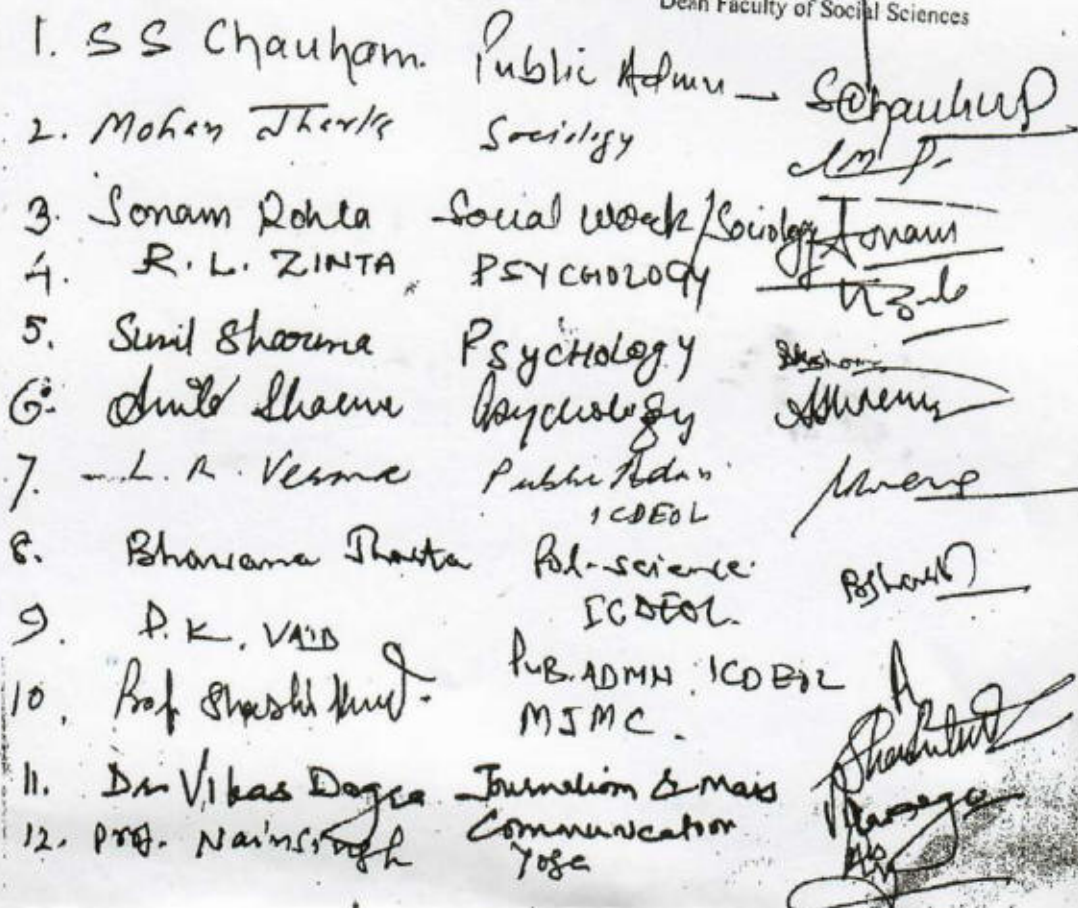 Dean Faculty of Social Sciences
1. S S Chauham. Public Admn - SChauhan
2. Mohan Jharta Sociology
3. Sonam Rohta Social Work/Sociology Sonam
4. R. L. ZINTA PSYCHOLOGY
5. Sunil Sharma PSYCHOLOGY
6. Sharma Psychology
7. L. R. Verma Public Admn
ICDEOL
8. Bhawana Jharta Pol-science
ICDEOL.
9. P. K. VAID PUB. ADMN. ICDEOL
10. Prof Shashi MJMC.
11. Dr Vikas Dogra Journalism & Mass
Communication
12. Prof. Nainsingh Yoga